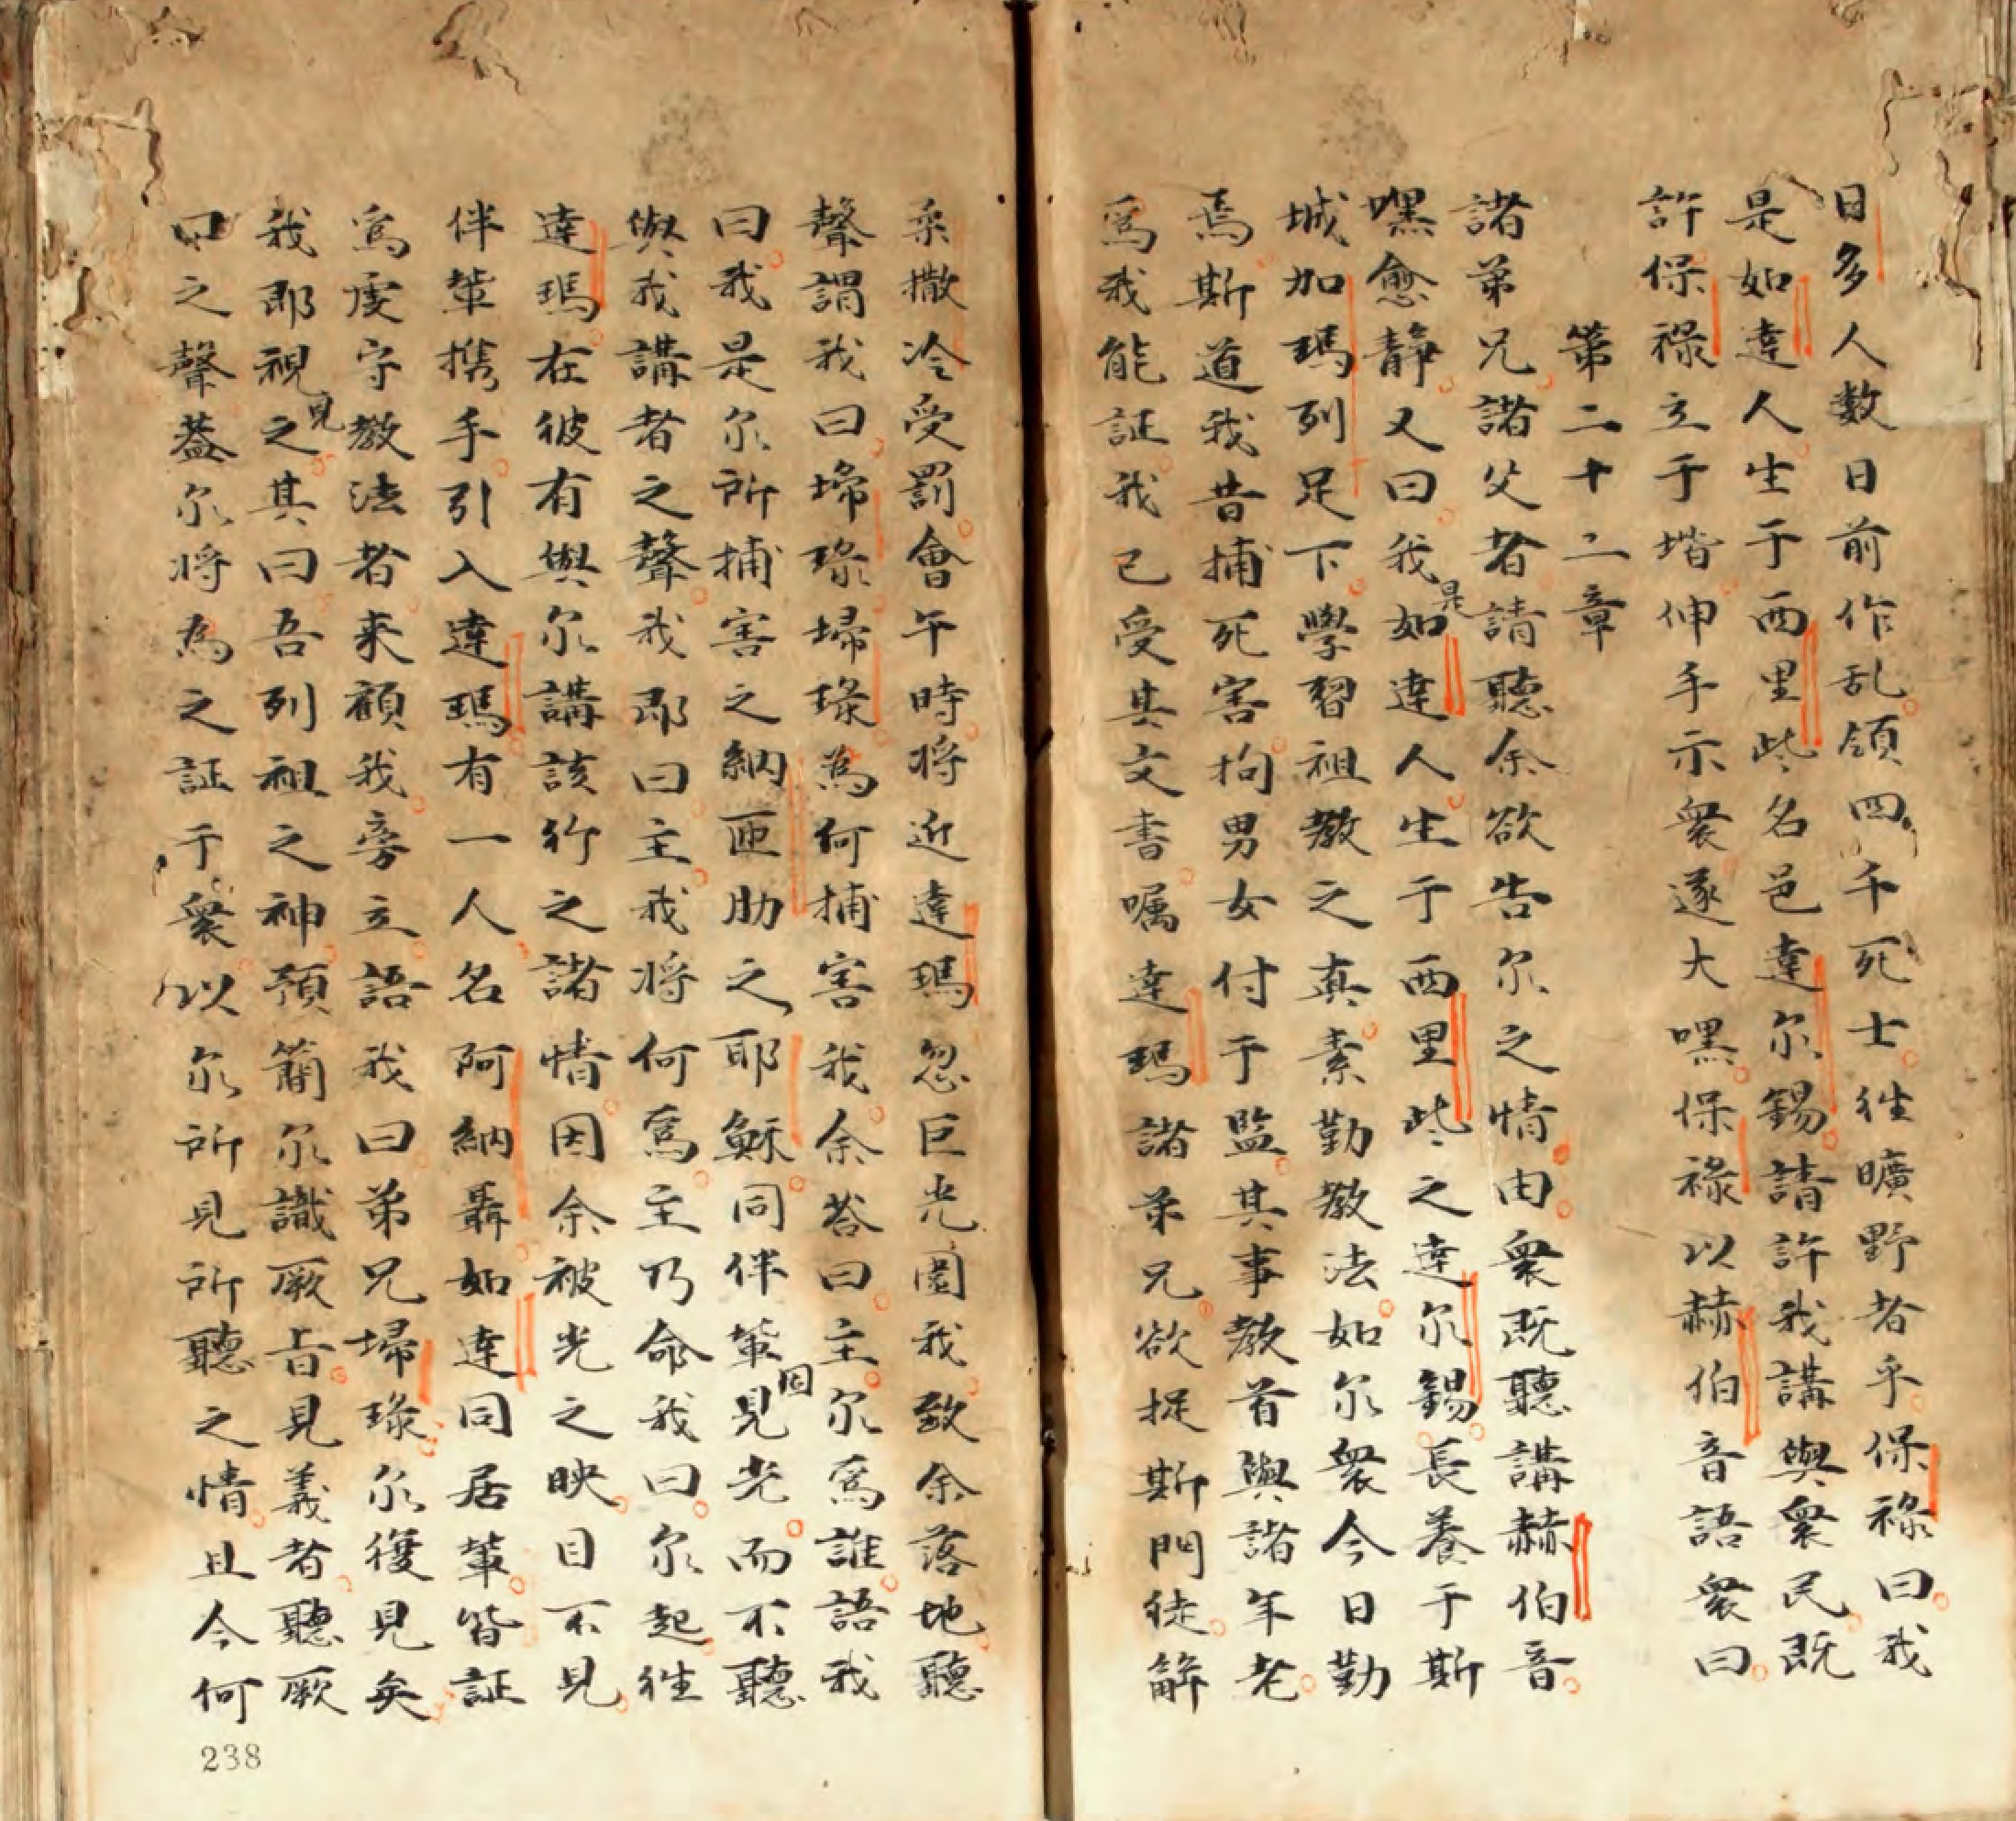 日多人数日前作乱領四千死士往曠野者乎保祿曰我
是如達人生于西里些名邑達尔錫請許我講與衆民既
許保祿立于堦伸手示衆遂大嘿保祿以赫伯音語衆曰
第二十二章
諸弟兄諸父者請聽余欲告尔之情由衆既聽講赫伯音
嘿愈靜又曰我是如達人生于西里些之達尔錫長養于斯
城加瑪列足下學習祖教之真素勤教法如尔衆今日勤
焉斯道我昔捕死害拘男女付于監其事教首與諸年老
爲我能証我已受其文書嘱達瑪諸弟兄欲捉斯門徒解
柔撒冷受罰會午時将近達瑪忽巨光圍我致余落地聽
聲謂我曰埽琭埽琭為何捕害我余荅曰主尔爲誰語我
曰我是尔所捕害之納匝肋之耶穌同伴輩見囘光而不聽
與我講者之聲我即曰主我将何爲主乃命我曰尔起往
達瑪在彼有與尔講該行之諸情因余被光之映目不見
伴輩携手引入達瑪有一人名阿納聶如達同居輩皆証
爲虔守教法者来顧我旁立語我曰弟兄埽琭尔復見矣
我即視見之其曰吾列祖之神預簡尔識厥旨見義者聽厥
口之聲葢尔将為之証于衆以尔所見所聽之情且今何
238